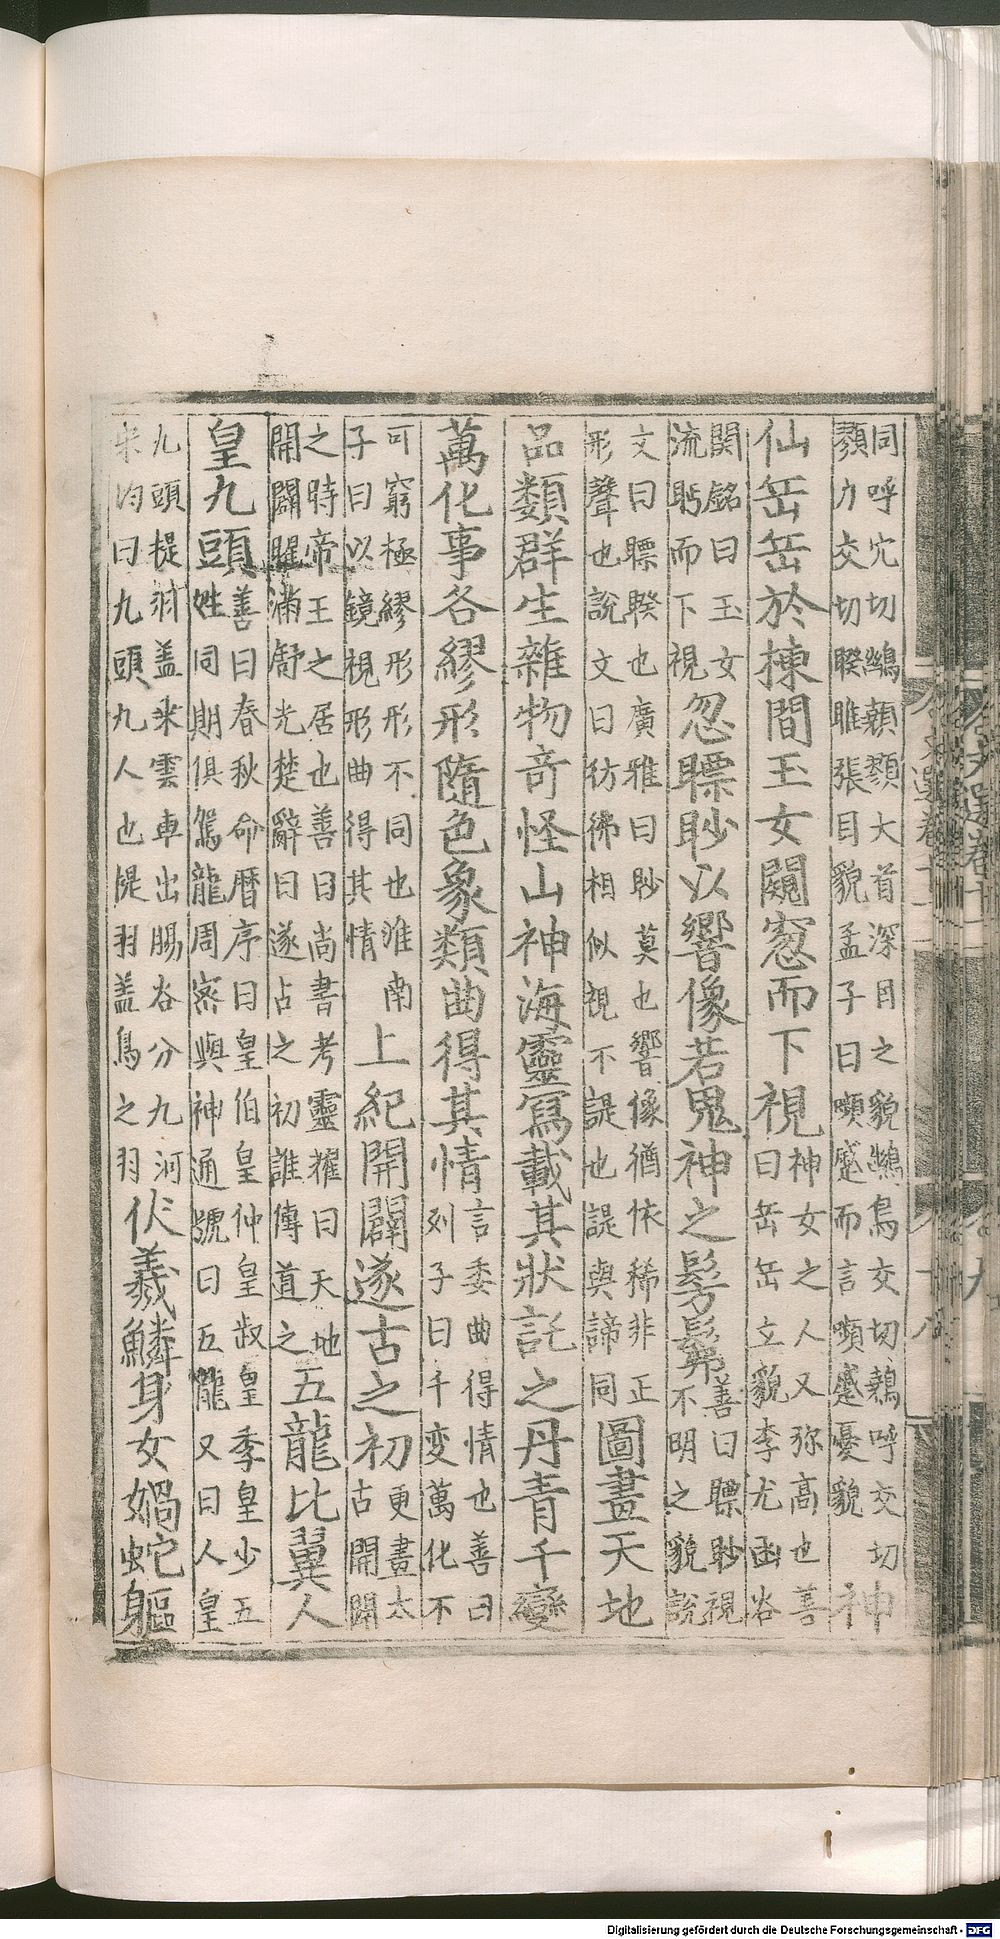 同呼穴切䴈顤顟大首深目之貌䴈鳥交切顤呼交切
顟力交切睽睢張目貌孟子曰嚬蹙而言嚬蹙憂貌
神
仙岳岳於揀間玉女闚窓而下視
神女之人又弥高也善
曰岳岳立貌李尤函谷
関銘曰玉女
流眄而下視
忽瞟眇以響像若鬼神之髣髴
善曰瞟眇視
不明之貌說
文曰瞟睽也廣雅曰眇莫也響像猶依稀非正
形聲也說文曰彷彿相似視不諟也諟與諦同
圖畫天地
品類群生雜物奇怪山神海靈冩載其狀託之丹青千變
萬化事各繆形隨色象類曲得其情
言委曲得情也善曰
列子曰千变萬化不
可窮極繆形形不同也淮南
子曰以鏡視形曲得其情
上紀開闢遂古之初
更畫太
古開闢
之時帝王之居也善曰尚書考靈耀曰天地
開闢曜滿舒光楚辭曰遂古之初誰傳道之
五龍比翼人
皇九頭
善曰春秋命曆序曰皇伯皇仲皇叔皇季皇少五
姓同期俱駕龍周密與神通號曰五龍又曰人皇
九頭提羽盖乗雲車出暘谷分九河
宋均曰九頭九人也提羽盖鳥之羽
伏羲鱗身女媧蛇軀
文選卷十一
十八
Digitalisierung gefördert durch die Deutsche Forschungsgemeinschaft - DFG